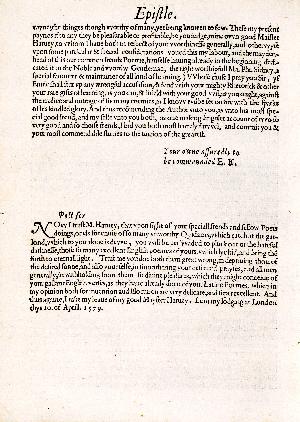 Epistle.
vaynether thinges though worthy of many, yet being knowen to few. These my present
paynes if to any they be pleasurable or profitable, be you iudge, mine own good Maister
Haruey, to whom I haue both in respect of your worthinesse generally, and otherwyse
vpon some particular & special considerations voued this my labour, and the mayden
head of this our commen frends Poetrie, himselfe hauing already in the beginning dedi-
cated it to the Noble and worthy Gentleman, the right worshipfull Ma. Phi. Sidney, a
special fauourer & maintainer of all kind of learning.) Whose cause I pray you Sir, yf
Enuie shall stur vp any wrongful accusasion, defend with your mighty Rhetorick & other
your rare gifts of learning, as you can, & shield with your good wil, as you ought, against
the malice and outrage of so many enemies, as I know wilbe set on fire with the sparks
of his kindled glory. And thus recommending the Author vnto you, as vnto his most spe-
cial good frend, and my selfe vnto you both, as one making singuler account of two so
very good and so choise frends, I bid you both most hartely farwel, and commit you &
your most commendable studies to the tuicion of the greatest.
Your owne assuredly to
be commaunded E. K.
Post scr
NOw I trust M. Haruey, that vpon sight of your speciall frends and fellow Poets
doings, or els for enuie of so many vnworthy Quidams, which catch at the gar-
lond, which to you alone is dewe, you will be perswaded to pluck out of the hateful
darknesse, those so many excellent English poemes of yours, which lye hid, and bring thē
forth to eternall light. Trust me you doe both them great wrong, in depriuing them of
the desired sonne, and also your selfe, in smoothering your deserued prayses, and all men
generally, in withholding from them so diuine pleasures, which they might conceiue of
your gallant English verses, as they haue already doen of your Latine Poemes, which in
my opinion both for inuention and Elocution are very delicate, and superexcellent. And
thus agayne, I take my leaue of my good Mayster Haruey. from my lodging at London
thys 10. of Aprill. 1579.